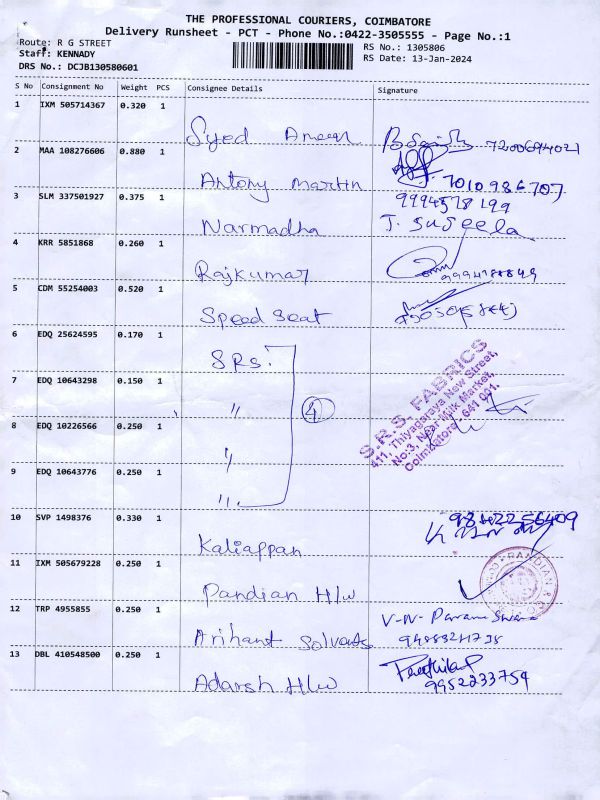 THE PROFESSIONAL COURIERS, COIMBATORE
Delivery Runsheet - PCT - Phone No.:0422-3505555 - Page No.:1
Route: R G STREET
Staff: KENNADY
DRS No.: DCJB130580601
RS No.: 1305806
RS Date: 13-Jan-2024
S No Consignment No Weight PCS Consignee Details Signature
1 IXM 505714367 0.320 1
Syed Ameen 7200694021
2 MAA 108276606 0.880 1
Antony Martin 7010986707
3 SLM 337501927 0.375 1 9994578199
Narmadha J. Suseela
4 KRR 5851868 0.260 1
Rajkumar
5 CDM 55254003 0.520 1
Speed Seat
6 EDQ 25624595 0.170 1
SRS.
7 EDQ 10643298 0.150 1
" 4
8 EDQ 10226566 0.250 1
"
9 EDQ 10643776 0.250 1
"
S.R.S. FABRICS
411, Thiyagaraya New Street,
No:3, Near Milk Market,
Coimbatore - 641 001.
10 SVP 1498376 0.330 1
Kaliappan
11 IXM 505679228 0.250 1
Pandian H/w PANDIAN
12 TRP 4955855 0.250 1 V-N-
Arihant Solvents
13 DBL 410548500 0.250 1
Adarsh H/w 9952233754